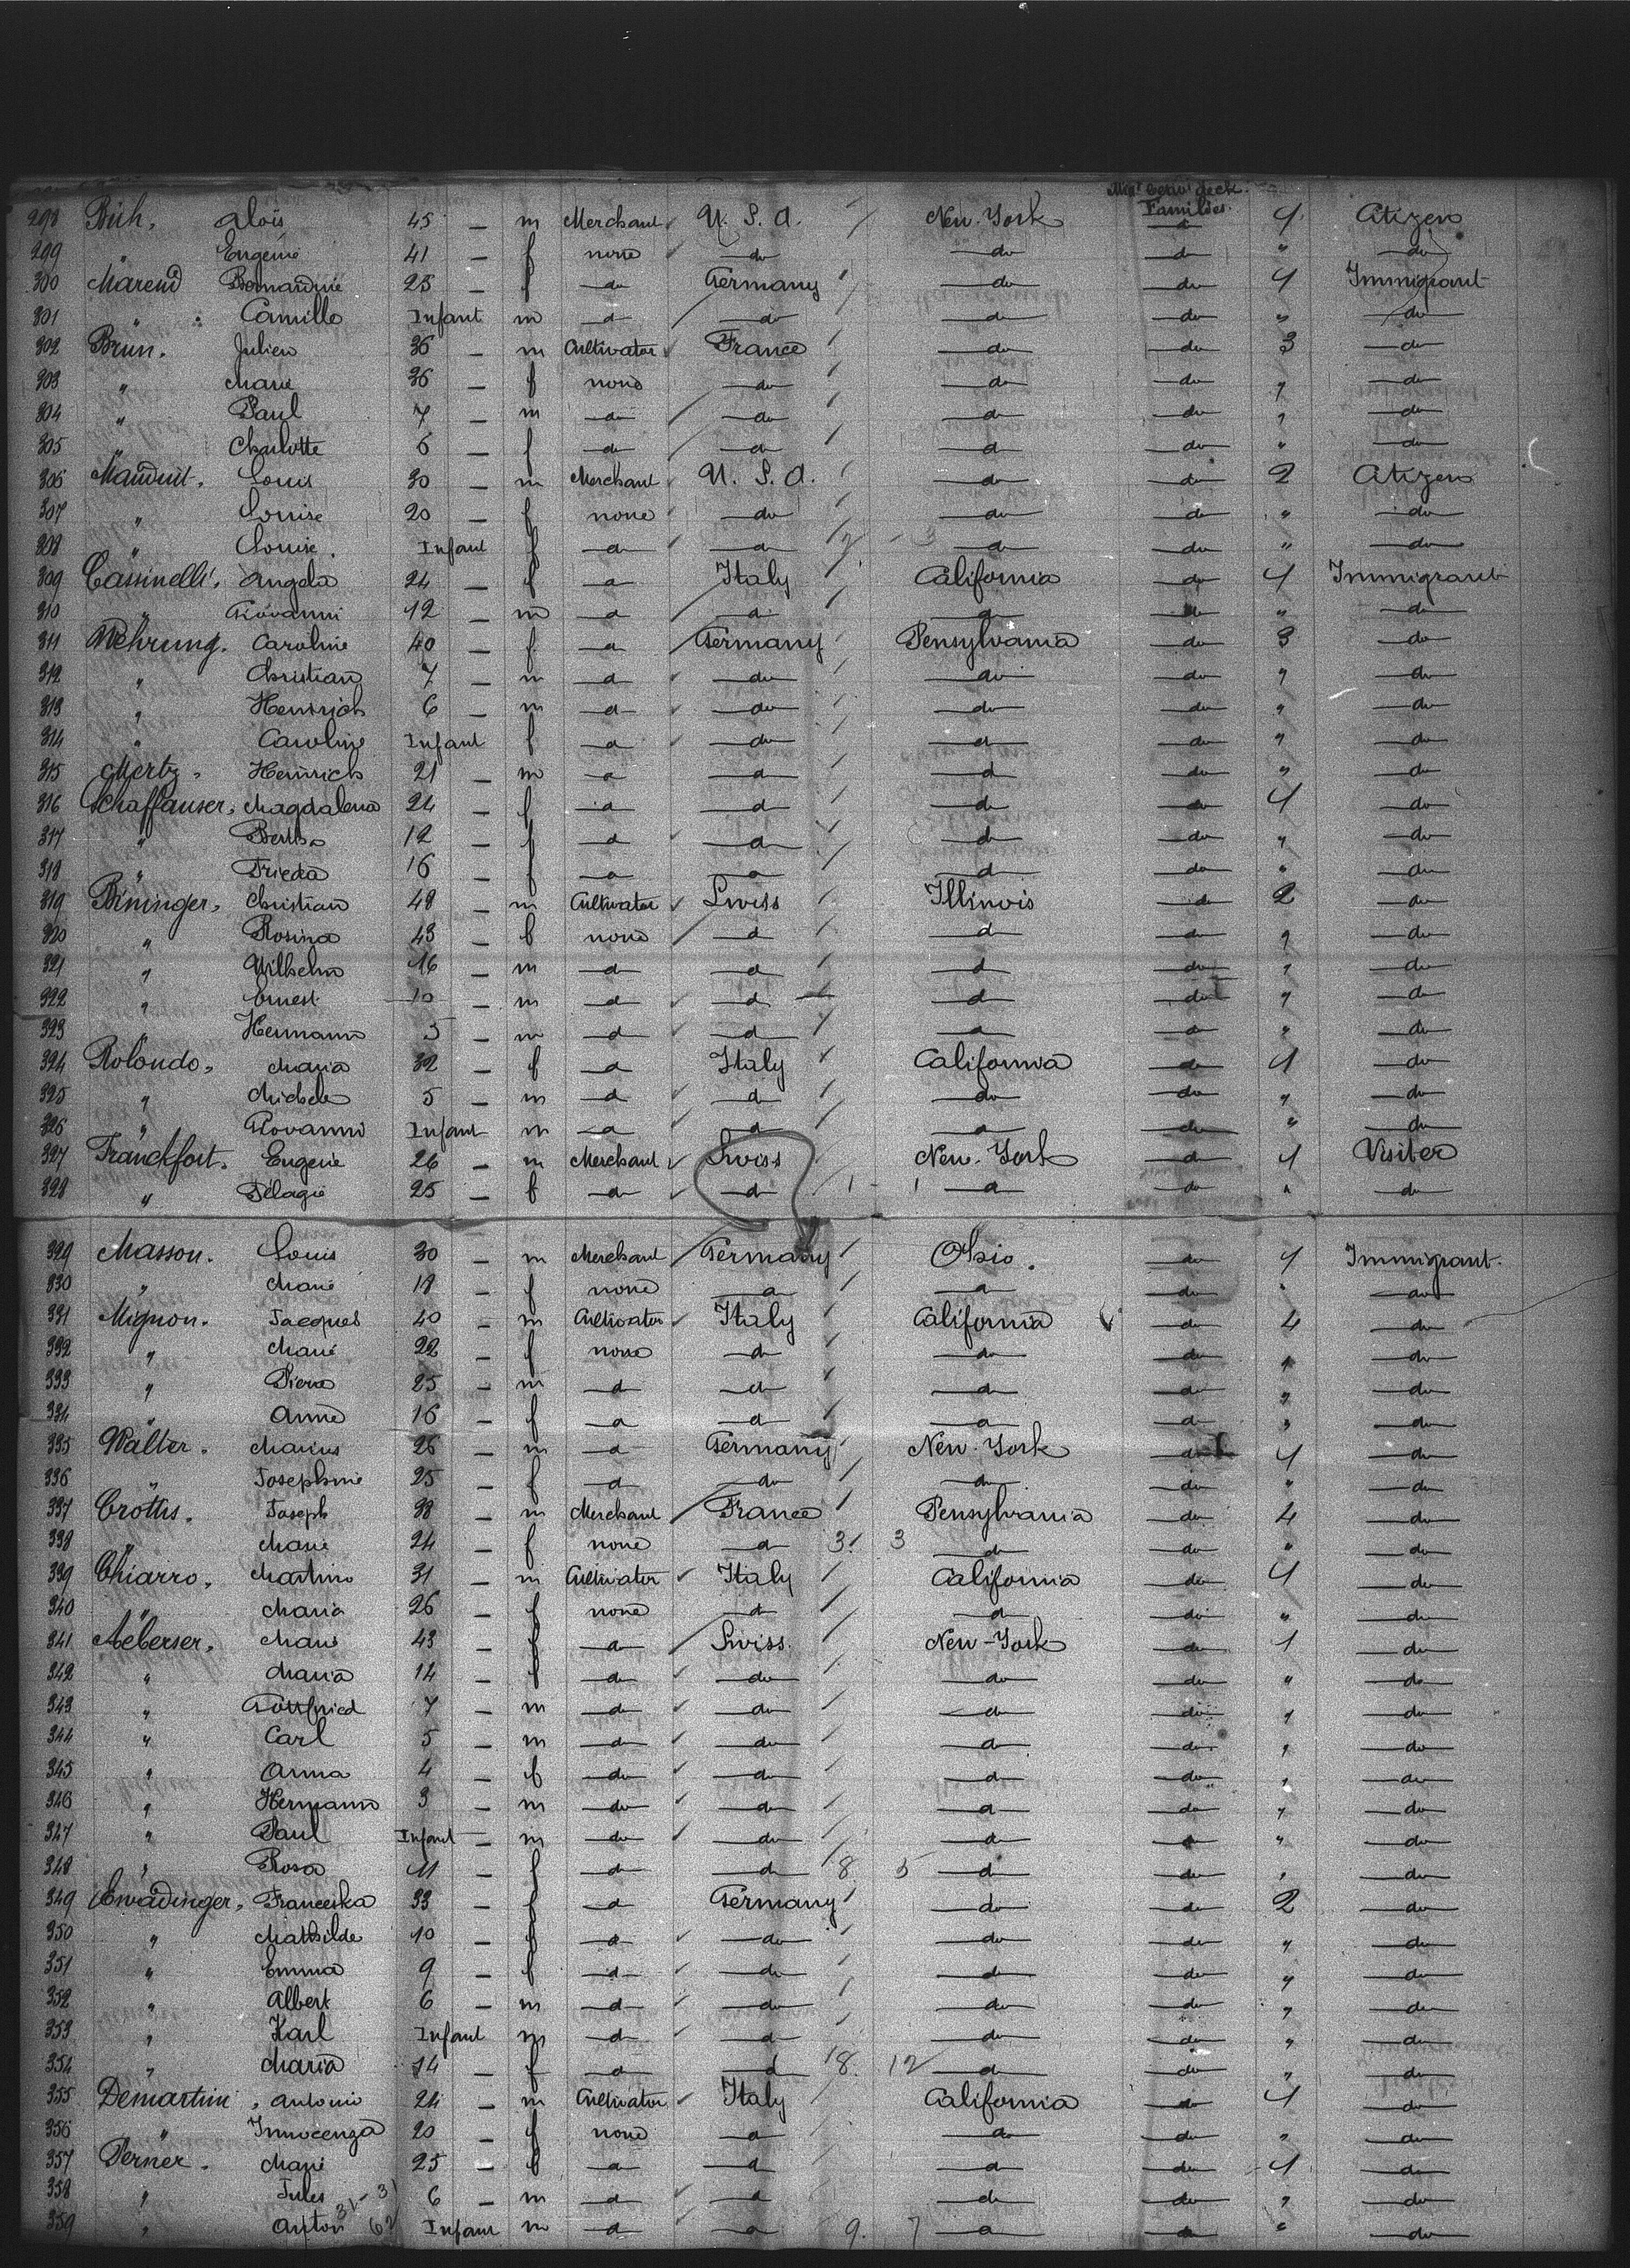 Families.
298 Bich, Aloïs 45 _ m Merchant U. S. A. New-York d 1 Citizen
299 " Eugenie 41 _ f none do do do " do
300 Marend Bernardine 25 _ f do Germany do do 1 Immigrant
301 " Camille Infant m d do do do " do
302 Brun. Julien 36 _ m Cultivator France do do 3 do
303 " Marie 36 _ f none do do do " do
304 " Paul 7 _ m do do do do " do
305 " Charlotte 6 _ f do do d do " do
306 Mauduit. Louis 30 _ m Merchant U. S. A. do do 2 Citizen
307 " Louise 20 _ f none do do do " do
308 " Louise. Infant f d d 2 - 3 d do " do
309 Cassinelli, Angela 24 _ f d Italy California do 1 Immigrant
310 " Giovanni 12 _ m d d d do " do
311 Wehrung. Caroline 40 _ f d Germany Pensylvania do 3 do
312 " Christian 7 _ m d do do do " do
313 " Heinrich 6 _ m d do do do " do
314 " Caroline Infant f d do d do " do
315 Mertz, Heinrich 21 _ m d d d do " do
316 Schaffauser, Magdalena 24 _ f d d d do 1 do
317 " Bertha 12 _ f d d d do " do
318 " Frieda 16 _ f d d d do " do
319 Bininger, Christian 48 _ m Cultivator Swiss Illinois do 2 do
320 " Rosina 43 _ f none d d do " do
321 " Wilhelm 16 _ m d d d do " do
322 " Ernest 10 _ m d d d do " do
323 " Hermann 5 _ m d d d d " do
324 Rolondo, Maria 32 _ f d Italy California do 1 do
325 " Michele 5 _ m d d do do " do
326 " Giovanni Infant m d d d do " do
327 Franckfort. Eugene 26 _ m Merchant Swiss New-York d 1 Visiter
328 " Pelagie 25 _ f d d 1 - 1 d do " do
329 Masson. Louis 30 _ m Merchant Germany Ohio. do 1 Immigrant
330 " Marie 18 _ f none d d do " do
331 Mignon. Jacques 40 _ m Cultivator Italy California do 4 do
332 " Marie 22 _ f none d do do " do
333 " Piera 25 _ m d d d do " do
334 " Anne 16 _ f d d d d " do
335 Walter. Marius 26 _ m d Germany New-York do 1 do
336 " Josephine 25 _ f d do do do " do
337 Crottis. Joseph 38 _ m Merchant France Pensylvania do 4 do
338 " Marie 24 _ f none d 3. 3 d do " do
339 Chiarro, Martino 31 _ m Cultivator Italy California do 1 do
340 " Maria 26 _ f none d d do " do
341 Aeberser, Marie 43 _ f d Swiss. New-York do 1 do
342 " Maria 14 _ f do do do do " do
343 " Gottfried 7 _ m do do do do " do
344 " Carl 5 _ m do do d do " do
345 " Anna 4 _ f do do d do " do
346 " Hermann 3 _ m do do d do " do
347 " Paul Infant _ m do do d d " do
348 " Rosa 11 _ f d d 8 5 d do " do
349 Ewadinger, Franceska 33 _ f d Germany do do 2 do
350 " Mathilde 10 _ f d do do do " do
351 " Emma 9 _ f d do do do " do
352 " Albert 6 _ m d do do do " do
353 " Karl Infant m d d do do " do
354 " Maria 14 _ f d d 8. 12 d do " do
355 Demartini, Antonio 24 _ m Cultivator Italy California do 1 do
356 " Innocenza 20 _ f none d do do " do
357 Perner. Marie 25 _ f d d d do 1 do
358 " Jules 6 _ m d d d do " do
31 - 31
359 " Anton 62 Infant m d d 9. 7 d do " do